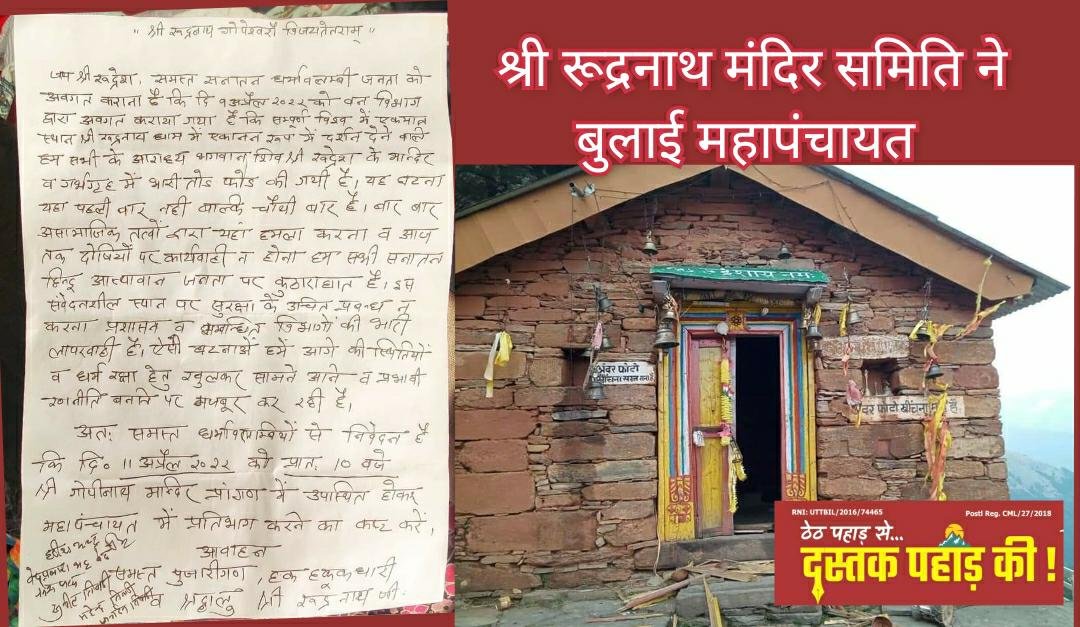 " श्री रूद्रनाथ गोपेश्वरौ विजयतेतराम् "
जय श्री रूद्रेश, समस्त सनातन धर्मावलम्बी जनता को
अवगत कराना है कि दि० 9 अप्रैल २०२२ को वन विभाग
द्वारा अवगत कराया गया है कि सम्पूर्ण विश्व में एकमात्र
स्थान श्री रूद्रनाथ धाम में एकानन रूप में दर्शन देने वाले
हम सभी के आराध्य भगवान शिव श्री रूद्रेश के मन्दिर
व गर्भगृह में भारी तोड फोड की गयी है, यह घटना
यहा पहली बार नही बल्कि चौथी बार है। बार बार
असामाजिक तत्वों द्वारा यहाँ हमला करना व आज
तक दोषियों पर कार्यवाही न होना हम सभी सनातन
हिन्दू आस्थावान जनता पर कुठाराघात है। इस
संवेदनशील स्थान पर सुरक्षा के उचित प्रबन्ध न
करना प्रशासन व सम्बन्धित विभागों की भारी
लापरवाही है, ऐसी घटनाऐं हमें आगे की स्थितियों
व धर्म रक्षा हेतु खुलकर सामने आने व प्रभावी
रणनीति बनाने पर मजबूर कर रही है,
अतः समस्त धर्मावलम्बियों से निवेदन है
कि दि० 11 अप्रैल २०२२ को प्रातः 10 बजे
श्री गोपीनाथ मन्दिर प्रांगण में उपस्थित होकर
महापंचायत में प्रतिभाग करने का कष्ट करें,
आवाहन
समस्त पुजारीगण, हक हकूकधारी
व श्रद्धालु श्री रूद्रनाथ जी.
श्री रूद्रनाथ मंदिर समिति ने
बुलाई महापंचायत
अंदर फोटो
खींचना सख्त मना है
अंदर फोटो खींचना मना है
RNI: UTTBIL/2016/74465
Postl Reg. CML/27/2018
ठेठ पहाड़ से...
दस्तक पहाड़ की !